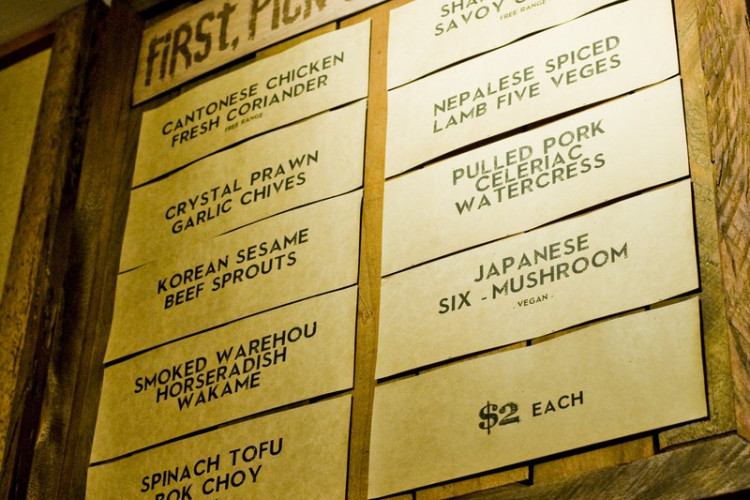 FIRST, PICK
CANTONESE CHICKEN
FRESH CORIANDER
FREE RANGE
CRYSTAL PRAWN
GARLIC CHIVES
KOREAN SESAME
BEEF SPROUTS
SMOKED WAREHOU
HORSERADISH
WAKAME
SPINACH TOFU
BOK CHOY
SAVOY
FREE RANGE
NEPALESE SPICED
LAMB FIVE VEGES
PULLED PORK
CELERIAC
WATERCRESS
JAPANESE
SIX - MUSHROOM
- VEGAN -
$2 EACH